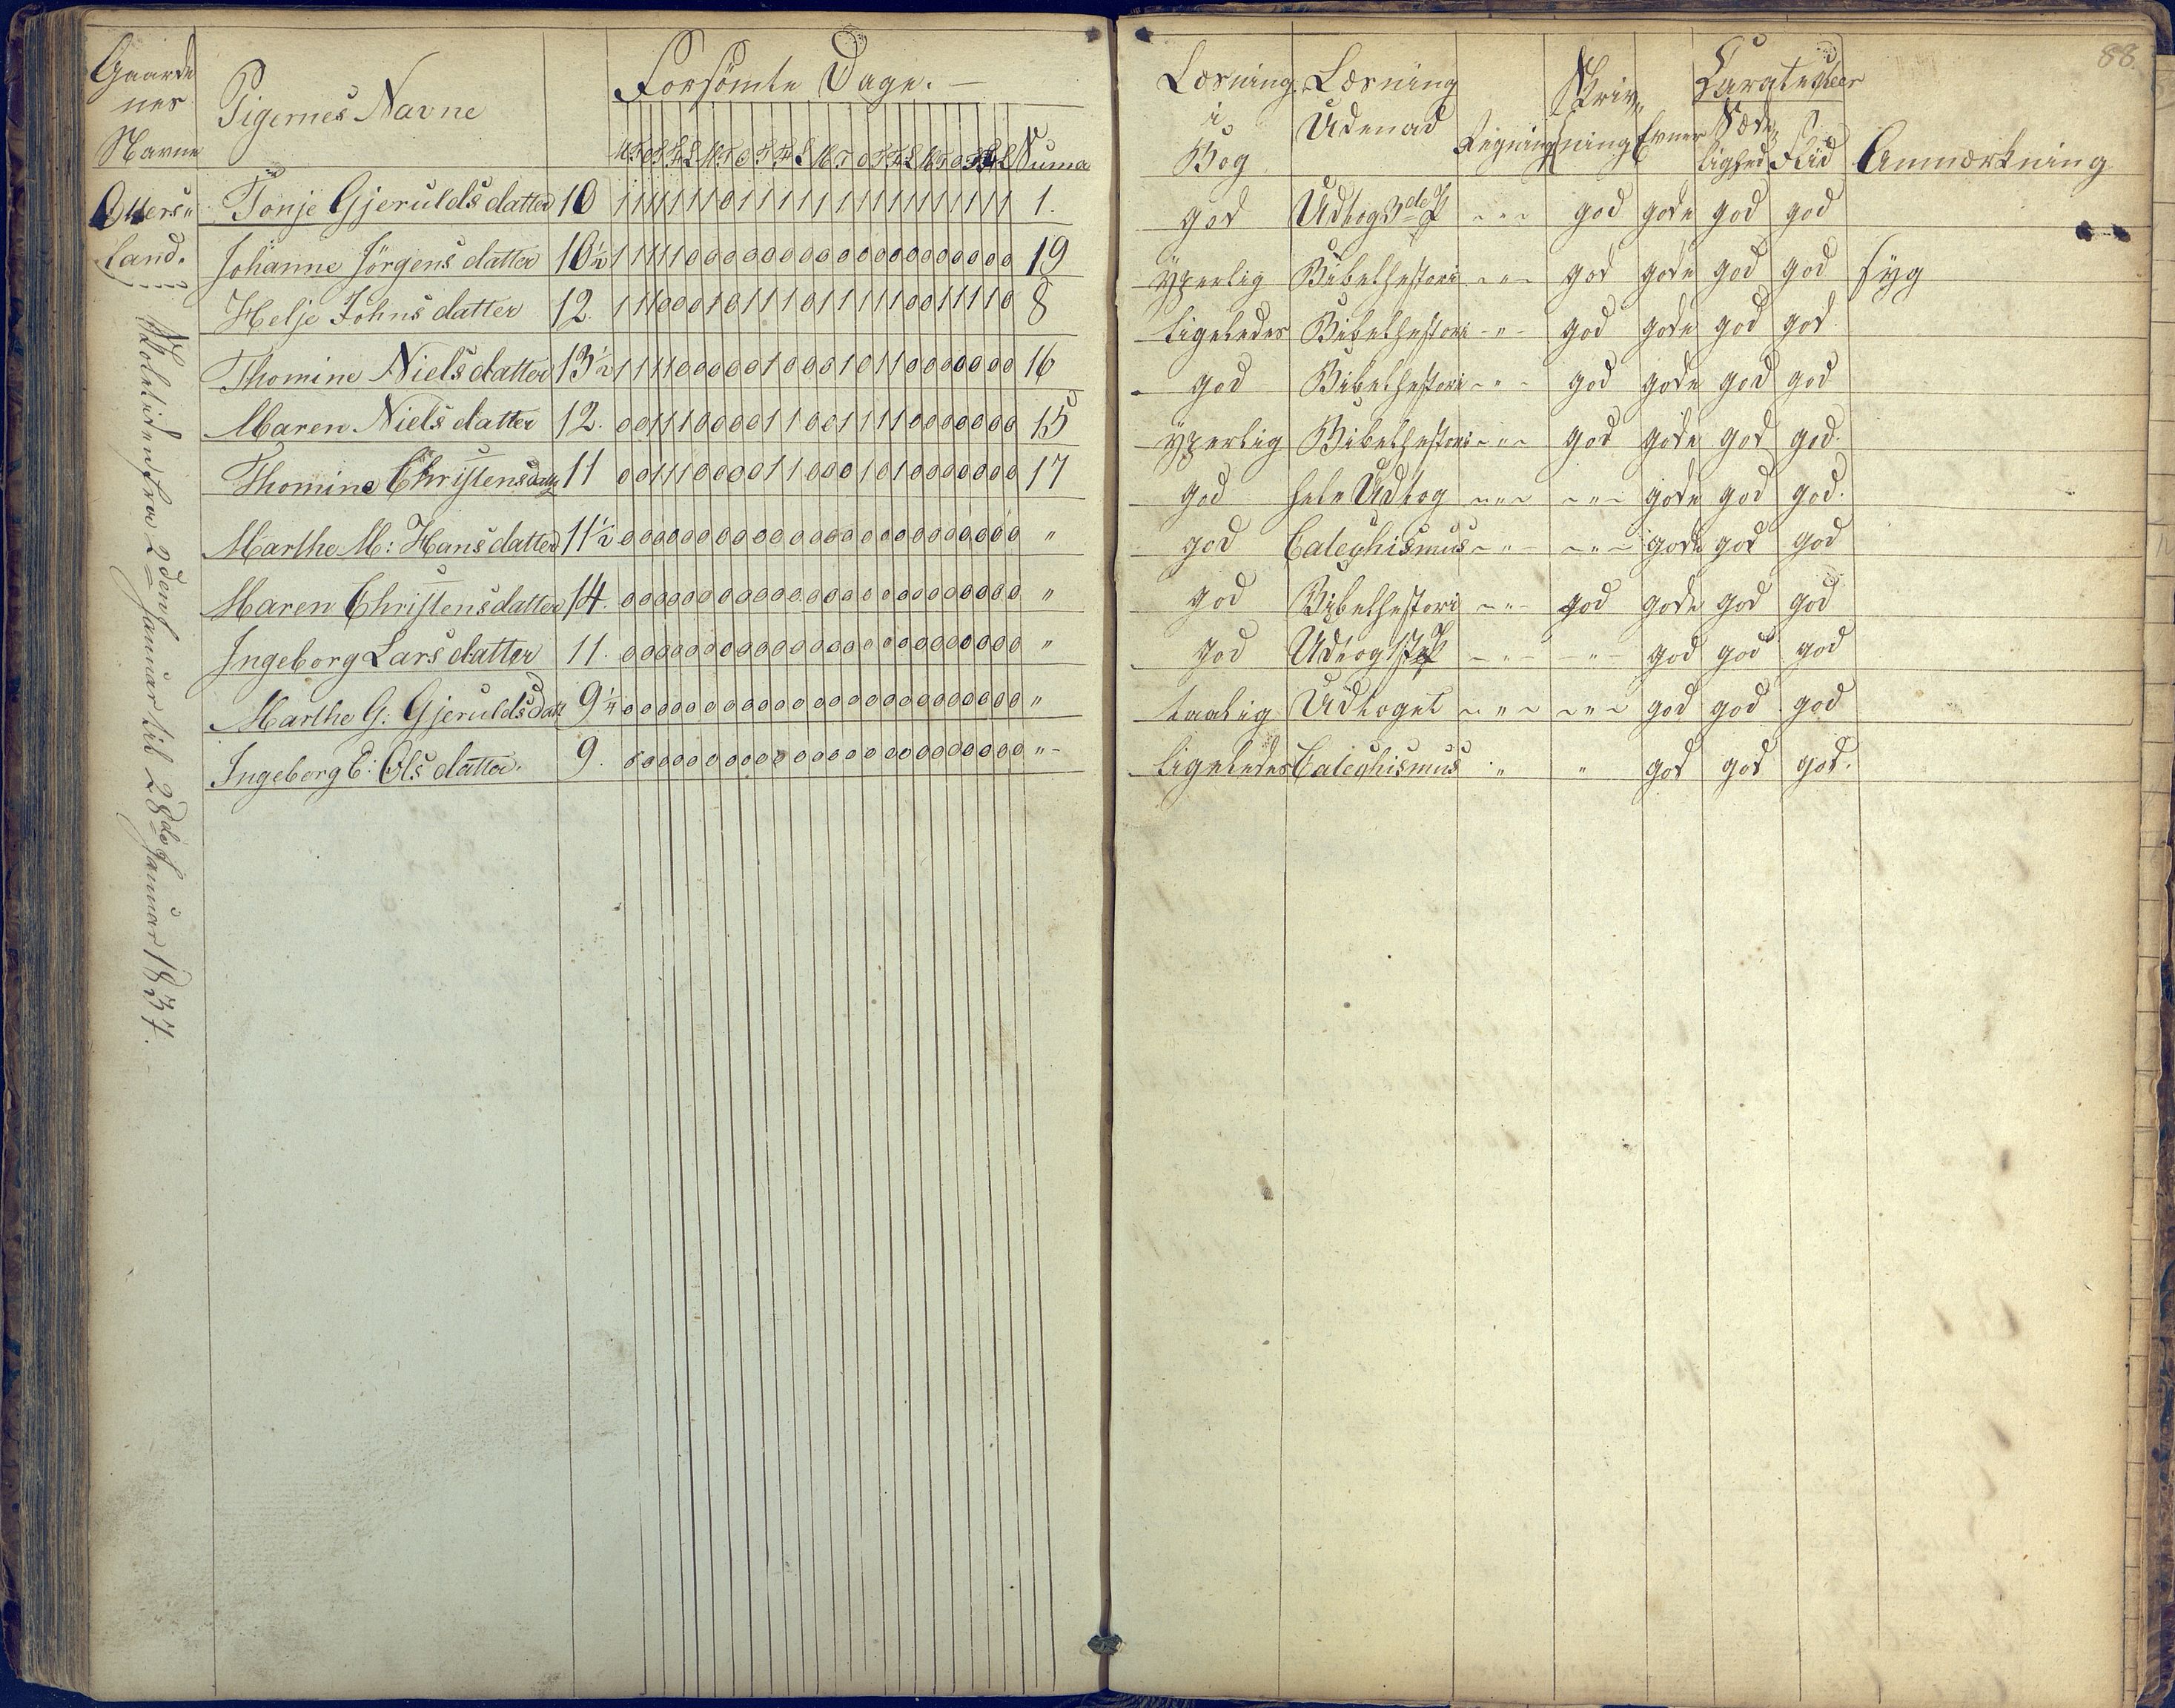 Gaarde
nes
Navne
Pigernes Navne
Forsömte Dage. —
M T O T F L M T O T F L M T O T F L M T O T F L Suma
Otters„
land.
Tonje Gjerulds datter 10 1 1 1 1 1 1 1 0 1 1 1 1 1 1 1 1 1 1 1 1 1 1 1 1 1.
Johanne Jörgens datter 10½ 1 1 1 1 1 0 0 0 0 0 0 0 0 0 0 0 0 0 0 0 0 0 0 0 19
Helje Johns datter 12. 1 1 1 0 0 0 1 0 1 1 1 0 1 1 1 1 1 0 0 1 1 1 1 0 8
Thomine Niels datter 13½ 1 1 1 1 0 0 0 0 0 1 0 0 0 1 0 1 1 0 0 0 0 0 0 0 16
Maren Niels datter 12. 0 0 1 1 1 0 0 0 0 1 1 0 0 1 1 1 1 0 0 0 0 0 0 0 15
Thomine Christensdatt 11 0 0 1 1 1 0 0 0 0 1 1 0 0 0 1 0 1 0 0 0 0 0 0 0 17
Marthe M: Hans datter 11½ 0 0 0 0 0 0 0 0 0 0 0 0 0 0 0 0 0 0 0 0 0 0 0 0 "
Maren Christensdatter 14. 0 0 0 0 0 0 0 0 0 0 0 0 0 0 0 0 0 0 0 0 0 0 0 0 "
Ingeborg Lars datter 11. 0 0 0 0 0 0 0 0 0 0 0 0 0 0 0 0 0 0 0 0 0 0 0 0 "
Marthe G: Gjerulds datt 9¼ 0 0 0 0 0 0 0 0 0 0 0 0 0 0 0 0 0 0 0 0 0 0 0 0 "
Ingeborg E: Ols datter. 9. 0 0 0 0 0 0 0 0 0 0 0 0 0 0 0 0 0 0 0 0 0 0 0 0 " -
Skoletiden fra 2den Januar til 28de Januar 1837.
88
Læsning i Bog
Læsning Udenad
Regning
Skriv„ning
Evner
Carateer
Sæde„lighed
Flid
Anmærkning
god Udtog 3de P - " - god gode god god
ypperlig Bibelhestori - " - god gode god god syg
ligeledes Bibelhestori - " - god gode god god
god Bibelhestori - " - god gode god god
ypperlig Bibelhestori - " - god gode god god.
god hele Udtog - " - - " - gode god god.
god Categhismus - " - - " - gode god god
god Bibelhestori - " - god gode god god
god Udtog 1ste P - " - " - god god god
taalig Udtoget - " - - " - god god god
ligeledes Categhismus " " god god god.